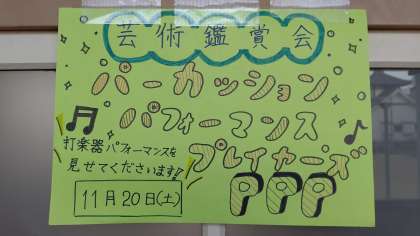 芸術鑑賞会
パーカッション
パフォーマンス
プレイヤーズ
PPP
打楽器パフォーマンスを
見せてくださいます!!
11月20日(土)